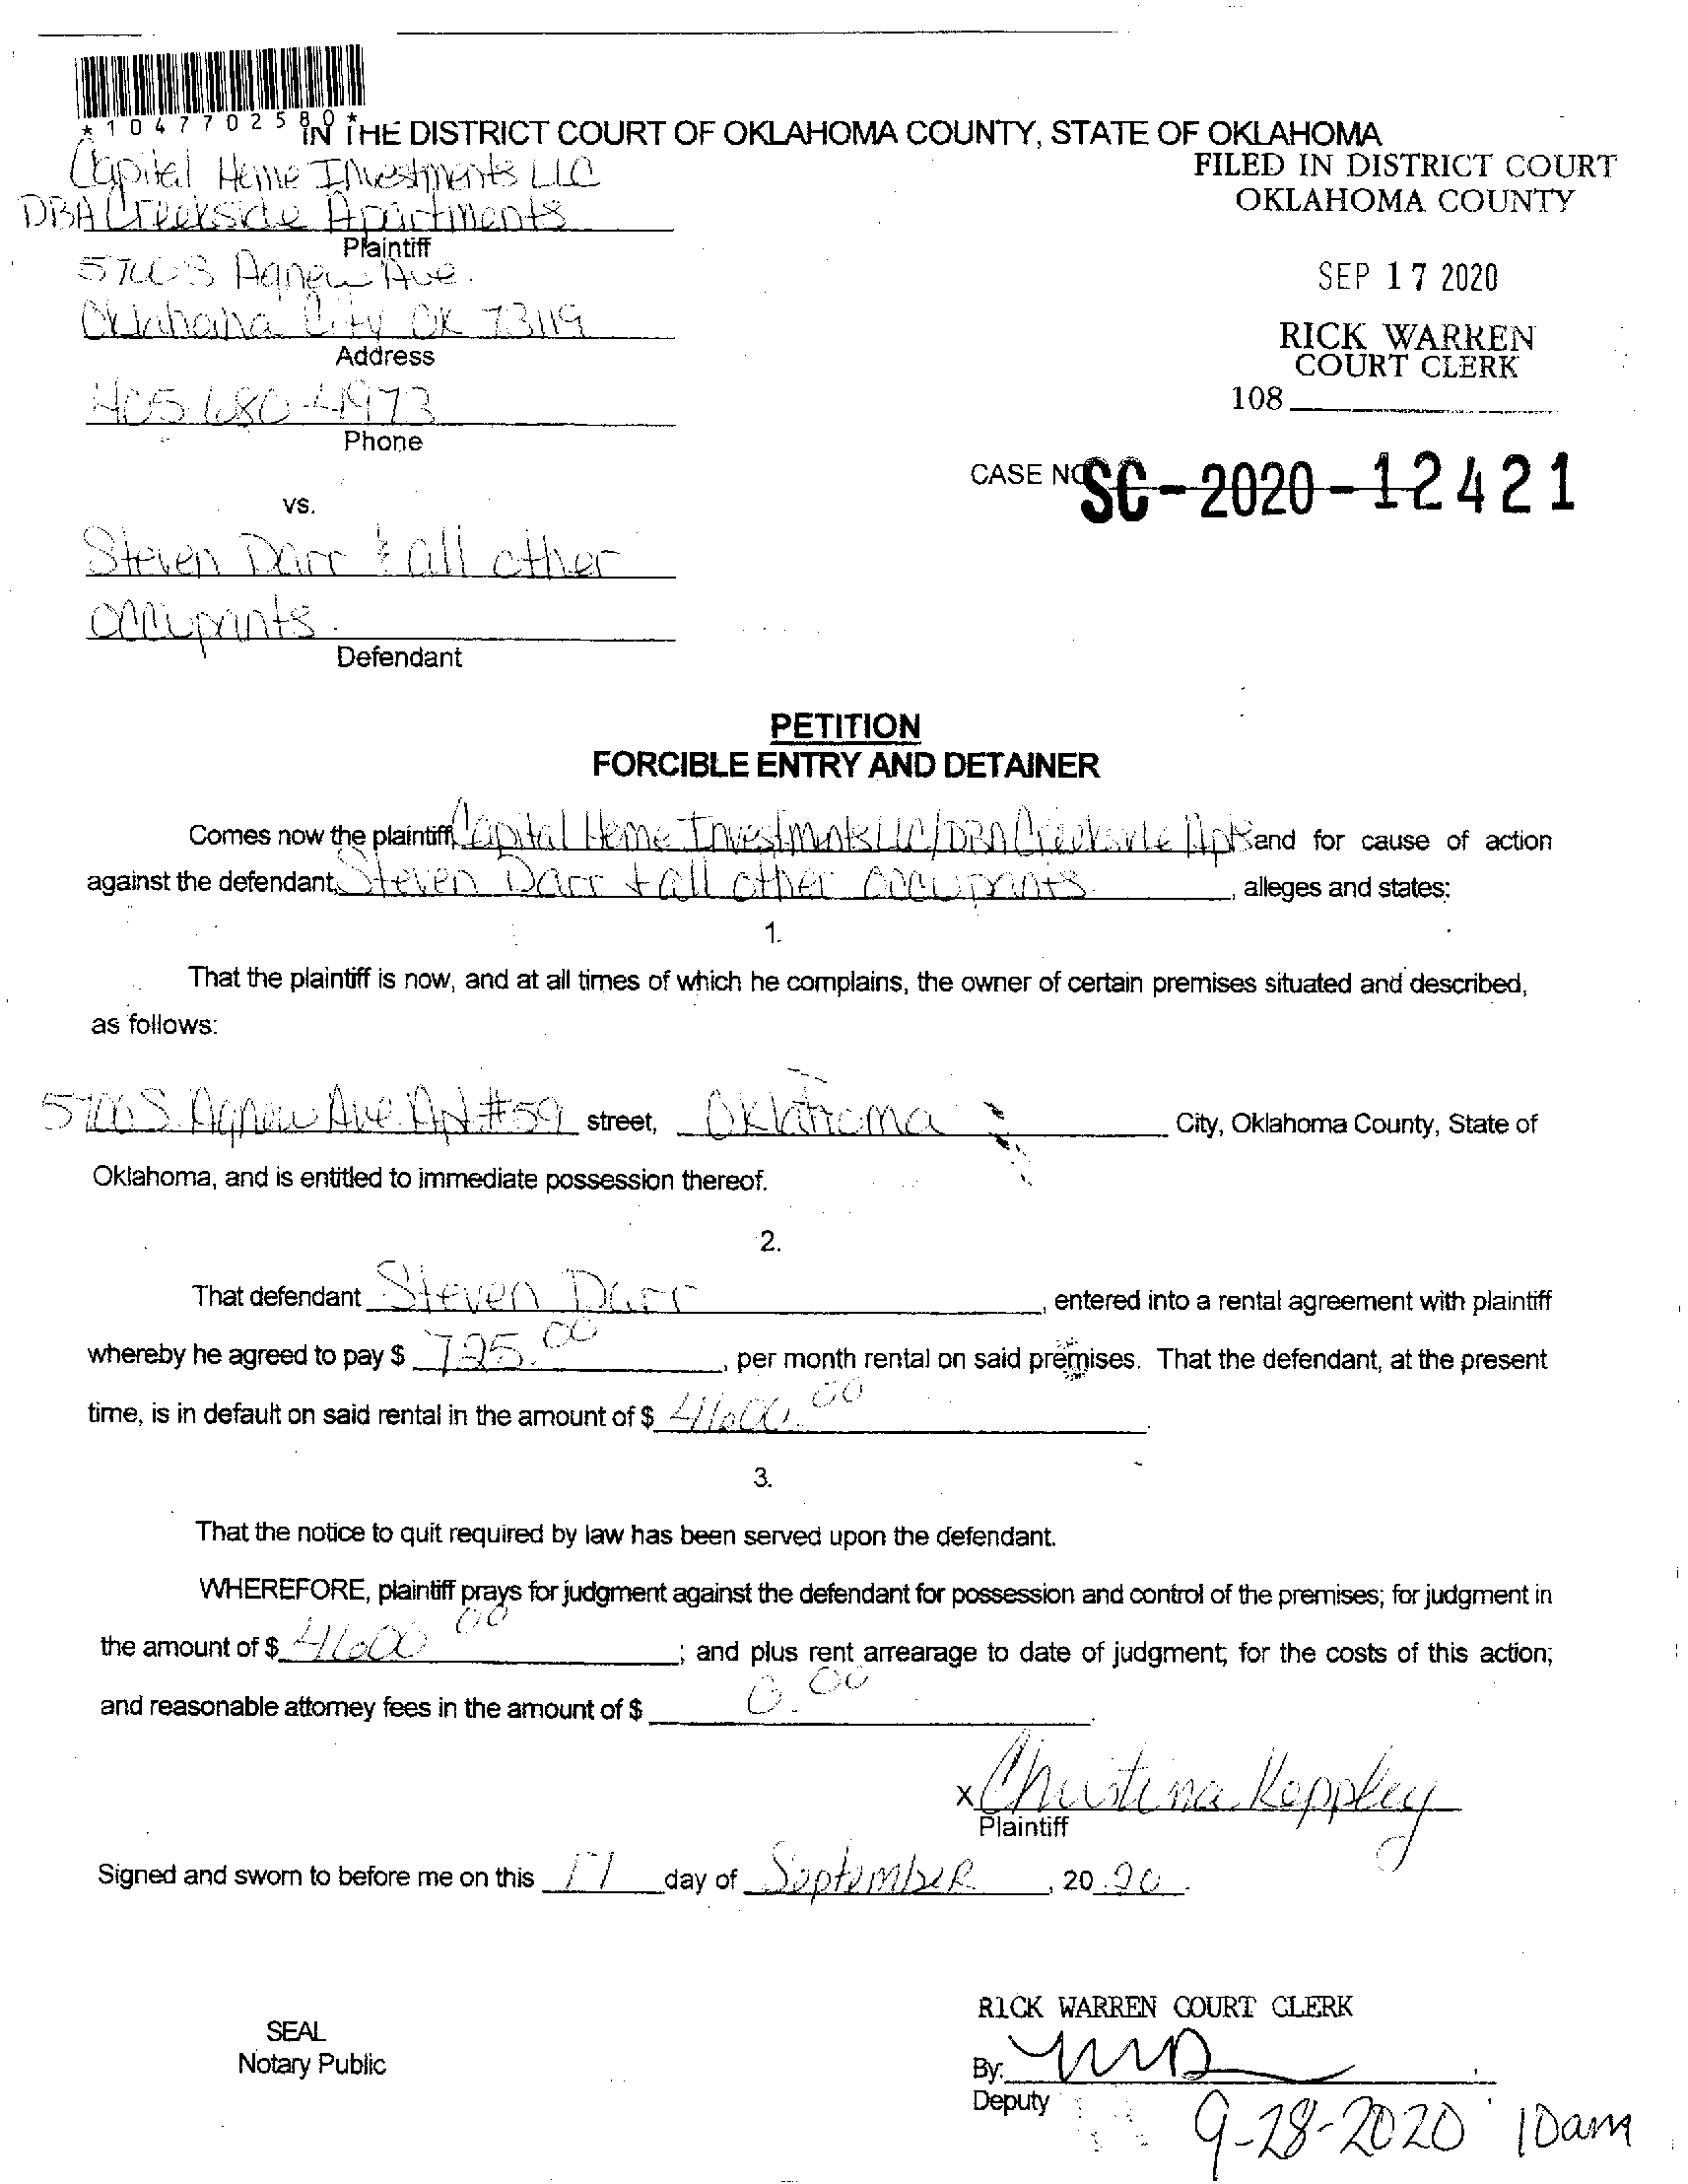 *1047702580*
IN THE DISTRICT COURT OF OKLAHOMA COUNTY, STATE OF OKLAHOMA
Capital Home Investments LLC
DBA Creekside Apartments
Plaintiff
FILED IN DISTRICT COURT
OKLAHOMA COUNTY
SEP 17 2020
RICK WARREN
COURT CLERK
108
S Agnew Ave.
Oklahoma City OK 73119
Address
405 680 4973
Phone
CASE NO SC-2020-12421
vs.
Steven Darr & all other
occupants.
Defendant
PETITION
FORCIBLE ENTRY AND DETAINER
Comes now the plaintiff, Capital Home Investments LLC/DBA Creekside Apts and for cause of action
against the defendant, Steven Darr + all other occupants. , alleges and states:
1.
That the plaintiff is now, and at all times of which he complains, the owner of certain premises situated and described,
as follows:
S. Agnew Ave. Apt #59 street, Oklahoma City, Oklahoma County, State of
Oklahoma, and is entitled to immediate possession thereof.
2.
That defendant Steven Darr , entered into a rental agreement with plaintiff
whereby he agreed to pay $ 725.00 , per month rental on said premises. That the defendant, at the present
time, is in default on said rental in the amount of $
3.
That the notice to quit required by law has been served upon the defendant.
WHEREFORE, plaintiff prays for judgment against the defendant for possession and control of the premises; for judgment in
the amount of $ ; and plus rent arrearage to date of judgment; for the costs of this action;
and reasonable attorney fees in the amount of $ 0.00
x Christina Keppley
Plaintiff
Signed and sworn to before me on this 17 day of September , 20 20 .
RICK WARREN COURT CLERK
SEAL
Notary Public
By:
Deputy
9-28-2020 10am